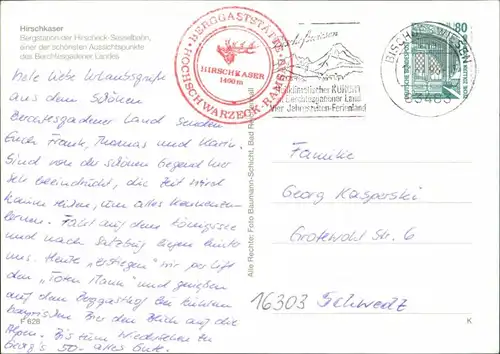 Hirschkaser
Bergstation der Hirscheck-Sesselbahn,
einer der schönsten Aussichtspunkte
des Berchtesgadener Landes
BERGGASTSTÄTTE
HIRSCHKASER
1400 m
HOCHSCHWARZECK · RAMSAU
Bischofswiesen
Heilklimatischer KURORT
im Berchtesgadener Land
Vier Jahreszeiten-Ferienland
BISCHOFSWIESEN
83483
80
Viele liebe Urlaubsgrüße
aus dem schönen
Berchtesgadener Land senden
Euch Frank, Thomas und Karin.
Sind von der schönen Gegend hier
sehr beeindruckt, die Zeit wird
kaum reichen, um alles kennenzu-
lernen. Fahrt auf dem Königssee
und nach Salzburg liegen hinter
uns. Heute "erstiegen" wir per Lift
den "Toten Mann" und genießen
auf dem Berggasthof bei kühlem
bayrischen Bier den Blick auf die
Alpen. Bis zum Wiedersehen zu
Georg's 50. alles Gute.
F 628
Alle Rechte: Foto Baumann-Schicht, Bad Reichenhall
Familie
Georg Kasperski
Grotewohl Str. 6
16303 Schwedt
K